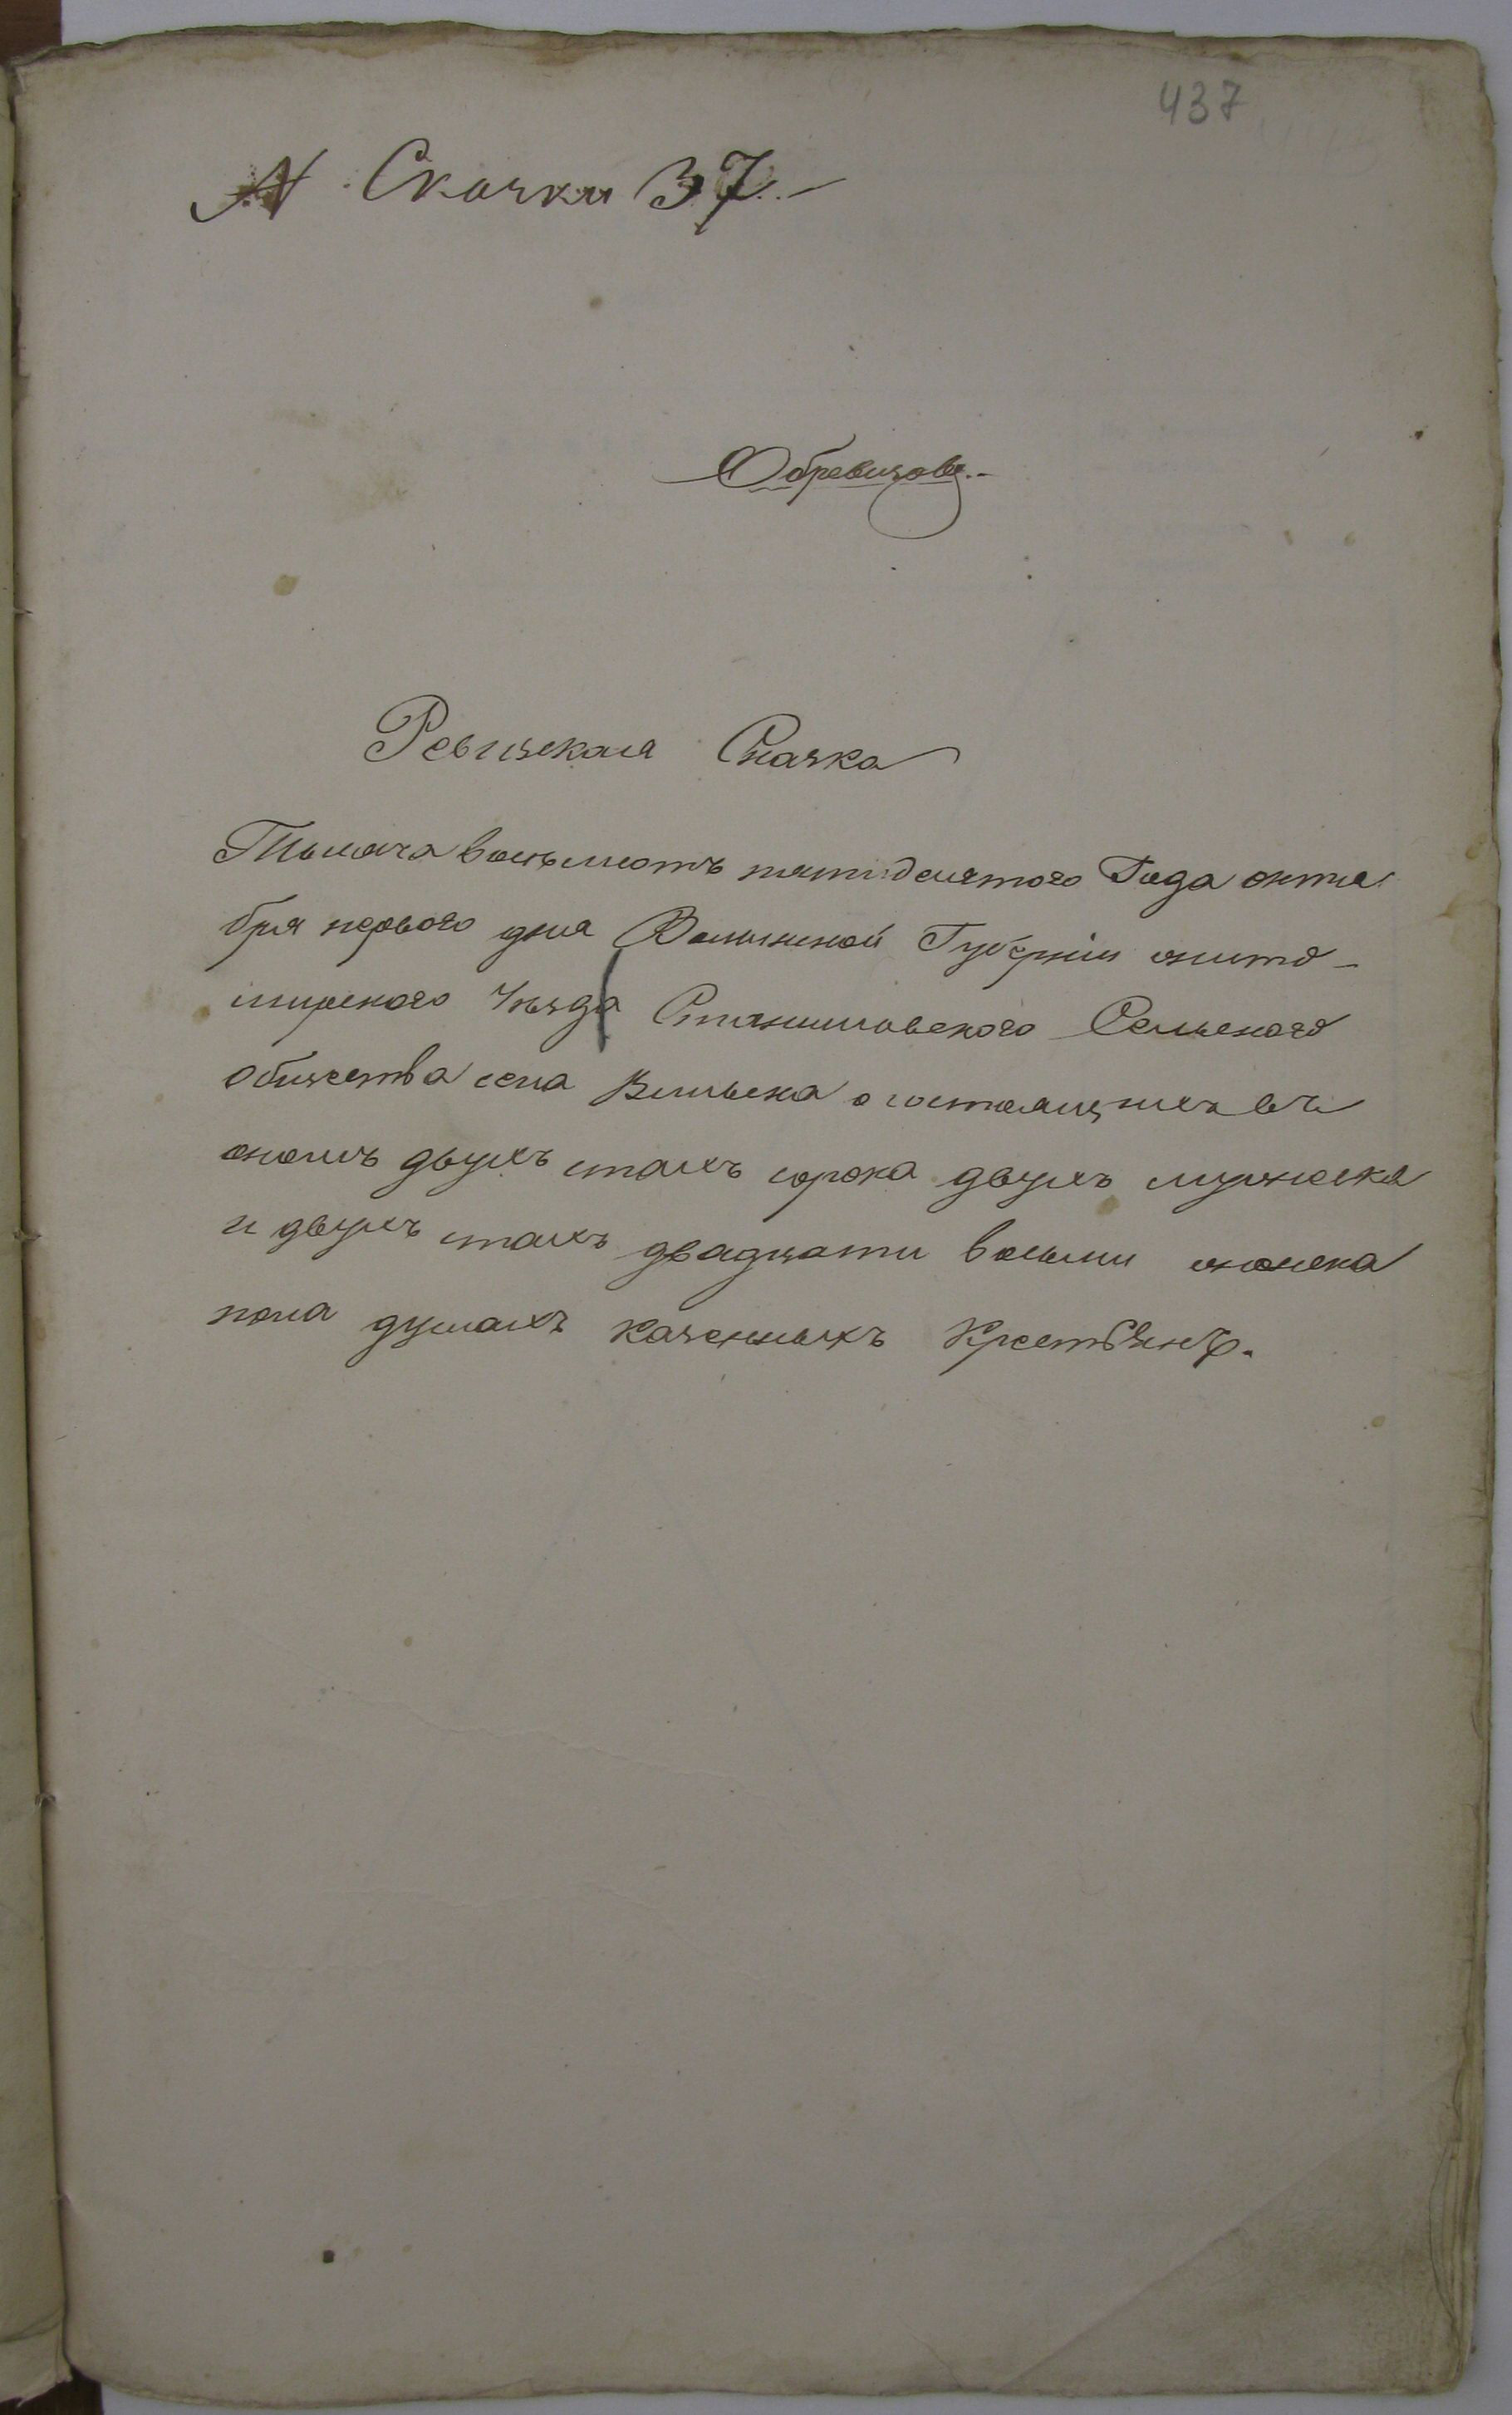 437
№ Сказки 37.-
Ревизская Сказка
Тысяча восьмсотъ пятидесятого Года октя
бря первого дня Волынской Губерніи жито-
мирского Уезда Станишовского Сельского
общества села Вильска о состоящихъ въ
ономъ двухъ стахъ сорока двухъ мужеска
и двухъ стахъ двадцати восьми женска
пола душахъ казенныхъ Крестьянъ.